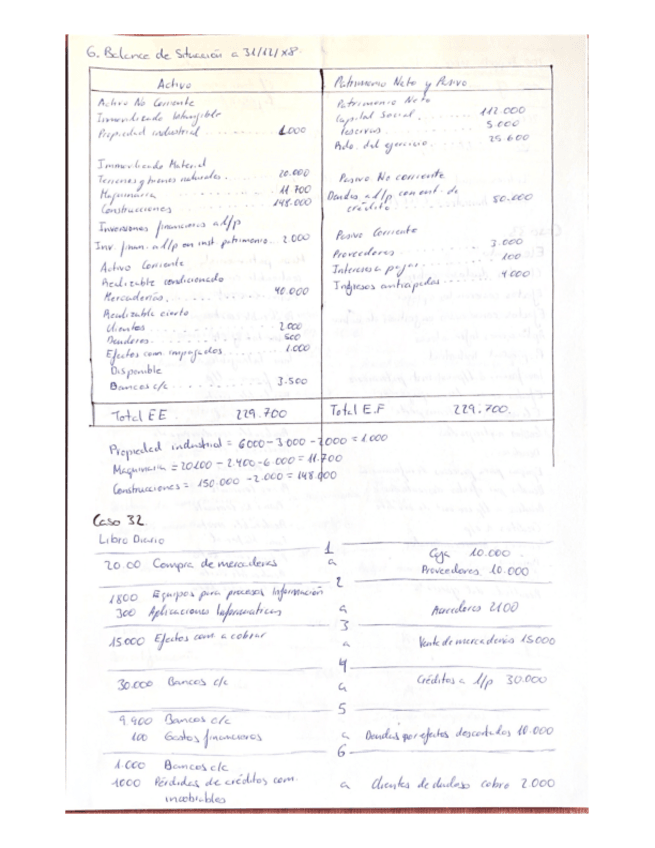 6. Balance de Situación a 31/12/x8.
Activo
Activo No Corriente
Inmovilizado Intangible
Propiedad industrial ........ 1.000
Inmovilizado Material
Terrenos y bienes naturales. ...... 20.000
Maquinaria ........ 11.700
Construcciones ........ 148.000
Inversiones financieras a l/p
Inv finan. a l/p en inst patrimonio. . 2.000
Activo Corriente
Realizable condicionado
Mercaderías. ........ 40.000
Realizable cierto
Clientes ........ 2.000
Deudores. ........ 500
Efectos com. impagados. ...... 1.000
Disponible
Bancos c/c ........ 3.500
Total EE 229.700
Patrimonio Neto y Pasivo
Patrimonio Neto
Capital Social. ...... 112.000
Reservas. ...... 5.000
Rdo. del ejercicio. ...... 25.600
Pasivo No corriente
Deudas a l/p con ent. de
crédito ........ 80.000
Pasivo Corriente
Proveedores. ...... 3.000
Intereses a pagar. ...... 100
Ingresos anticipados. ...... 4.000
Total E.F 229.700.
Propiedad industrial = 6000 - 3.000 - 2.000 = 1.000
Maquinaria = 20.100 - 2.400 - 6.000 = 11.700
Construcciones = 150.000 - 2.000 = 148.000
Caso 32.
Libro Diario
1
20.00 Compra de mercaderías a Caja 10.000
Proveedores 10.000
2
1800 Equipos para procesos información
300 Aplicaciones Informáticas a Acreedores 2100
3
15000 Efectos com a cobrar a Venta de mercaderías 15000
4
30.000 Bancos c/c a Créditos a l/p 30.000
5
9.900 Bancos c/c
100 Gastos financieros a Deudas por efectos descontados 10.000
6
1.000 Bancos c/c
1000 Pérdidas de créditos com. a Clientes de dudoso cobro 2.000
incobrables